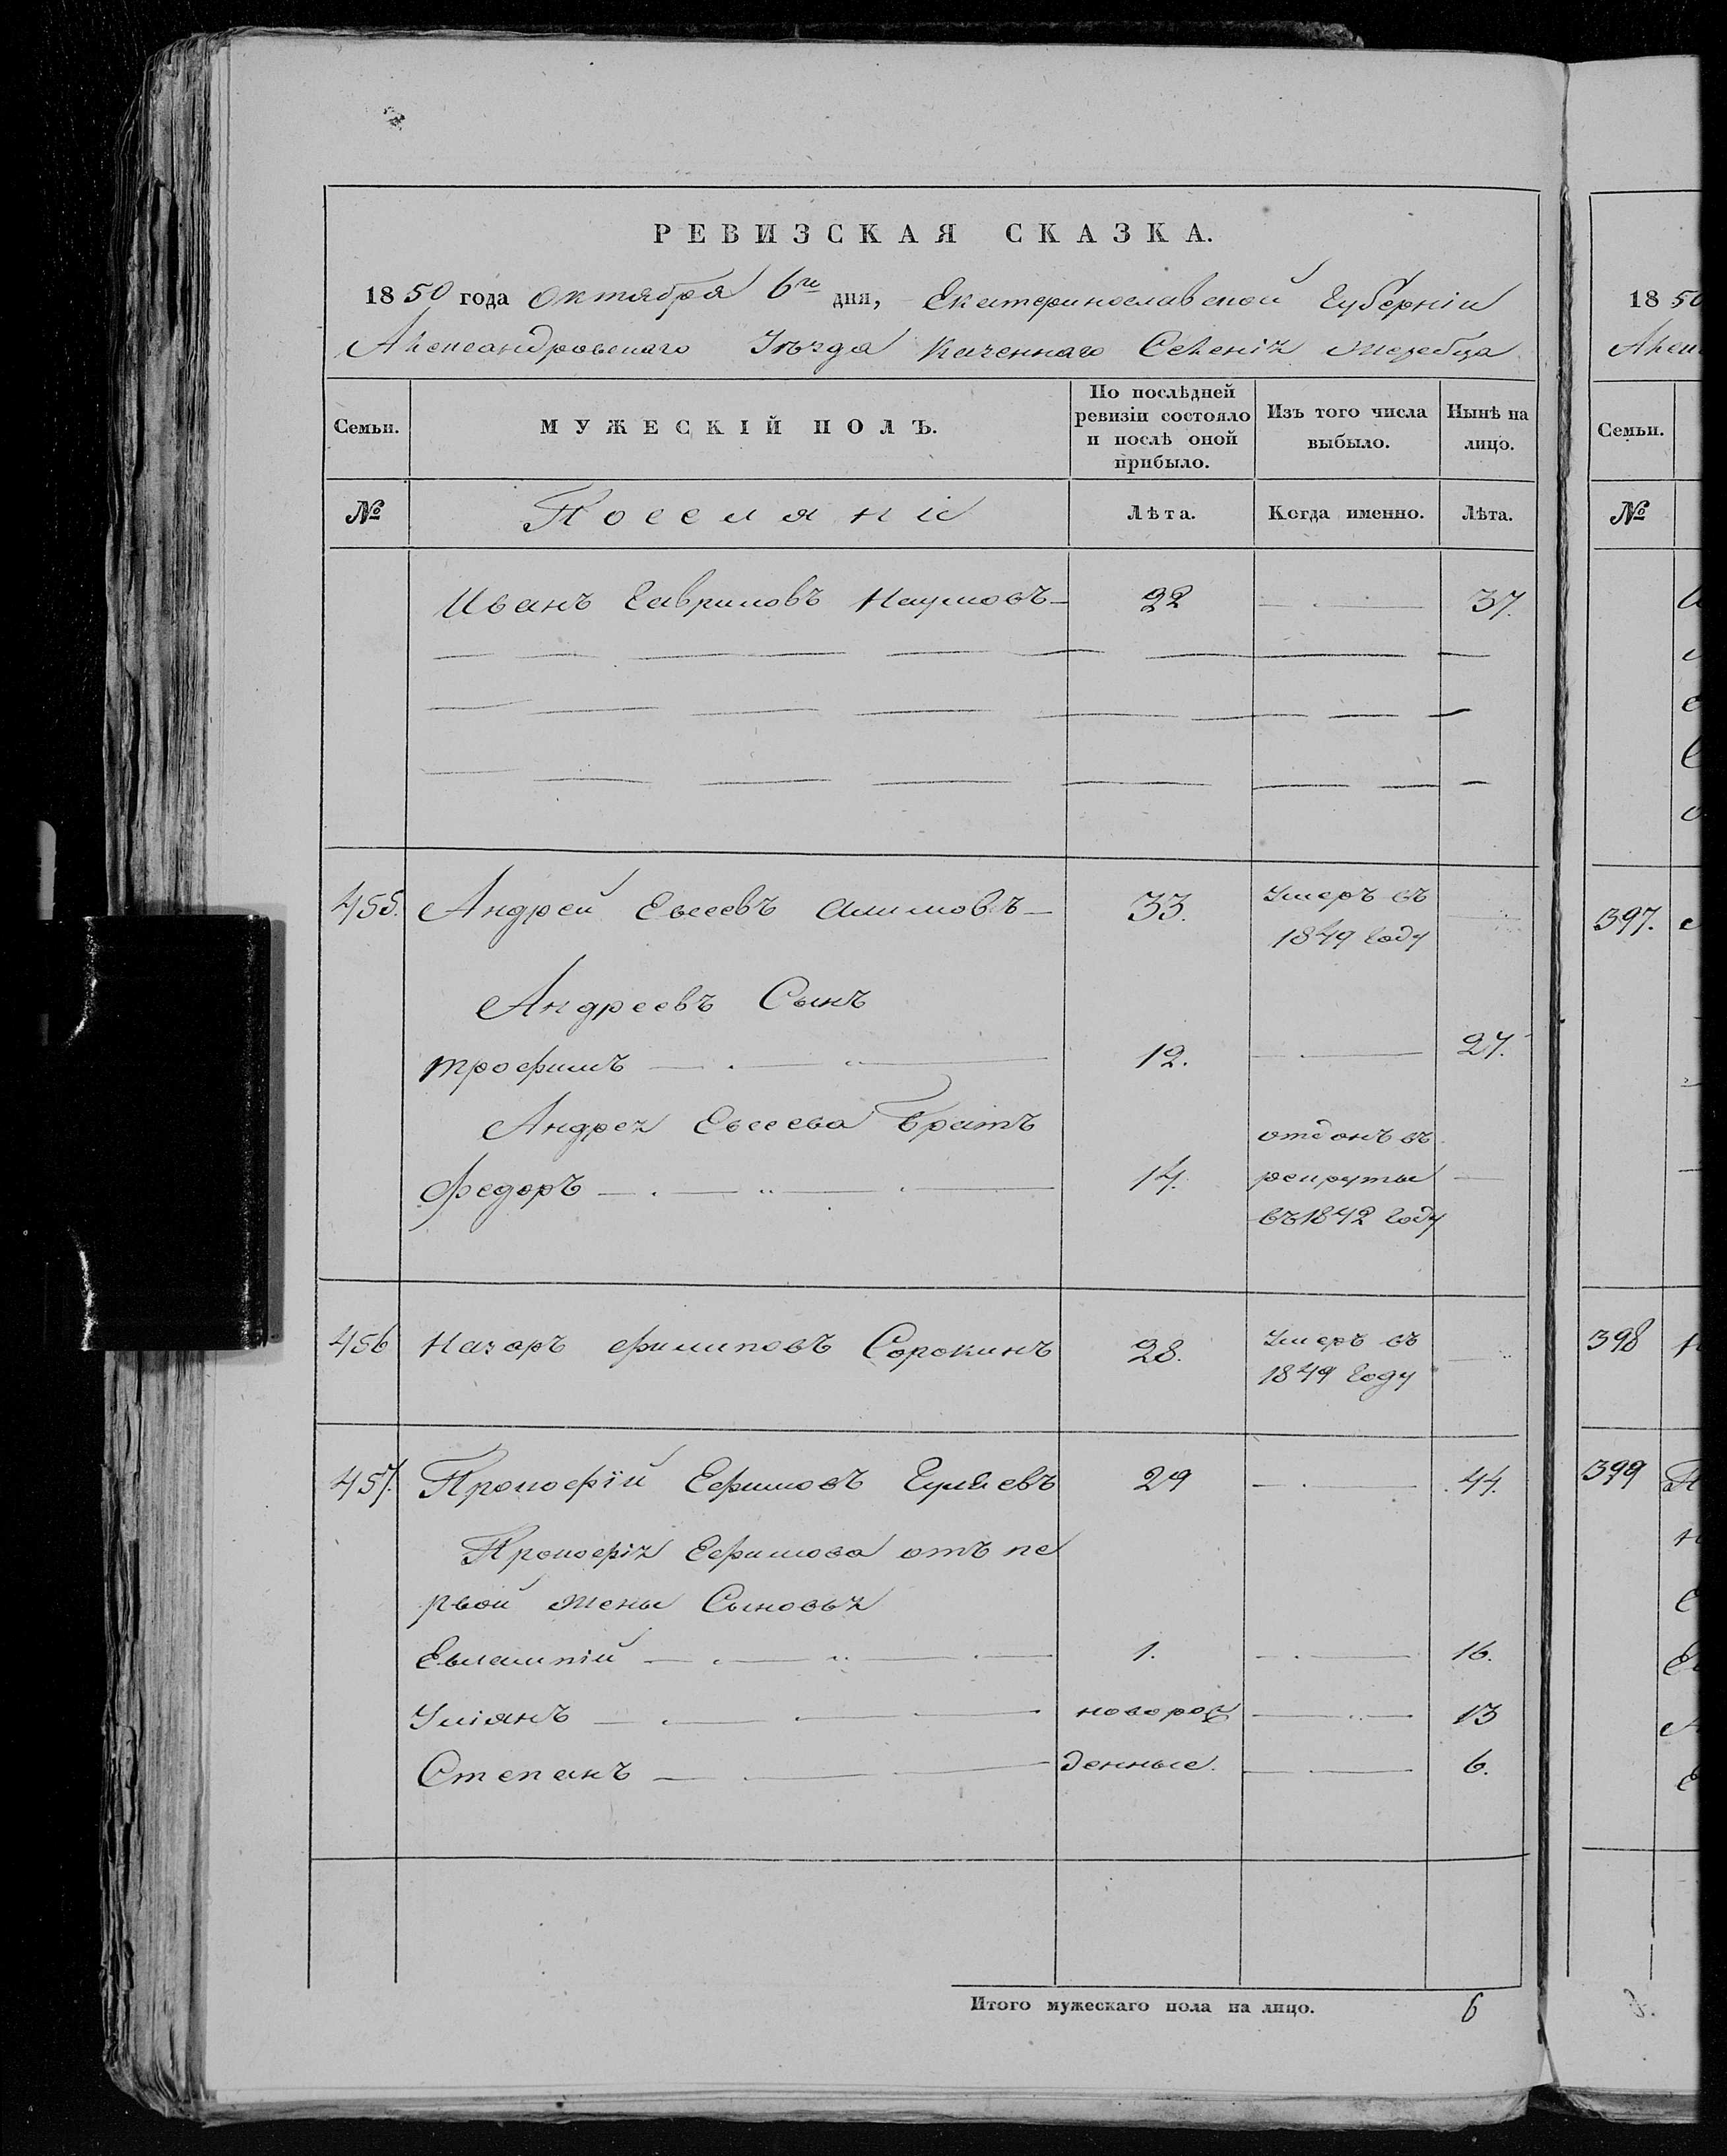 РЕВИЗСКАЯ СКАЗКА.
1850 года Октября 6го дня, Екатеринославской Губерніи
Александровскаго Уѣзда Казеннаго Селенія Жеребца
Семьи.
МУЖЕСКІЙ ПОЛЪ.
По послѣдней
ревизіи состояло
и послѣ оной
прибыло.
Изъ того числа
выбыло.
Нынѣ на
лицо.
№
Поселяніе
Лѣта.
Когда именно.
Лѣта.
Иванъ Гавриловъ Наумовъ 22 37.
455. Андрей Евсеевъ Алимовъ 33. Умеръ въ
1849 году
Андреевъ Сынъ
трофимъ 12. 27.
Андрея Евсеева Братъ
Федоръ 14. отданъ въ
рекруты
въ 1842 году
456 Назаръ Филиповъ Сорокинъ 28. Умеръ въ
1849 году
457. Прокофій Ефимовъ Гуляевъ 29 44.
Прокофія Ефимова отъ пе
рвой жены Сыновья
Евлампій 1. 16.
Уліянъ новорож 13
Степанъ денные. 6.
Итого мужескаго пола на лицо. 6
1850
Алек
Семьи.
№
397.
398
399